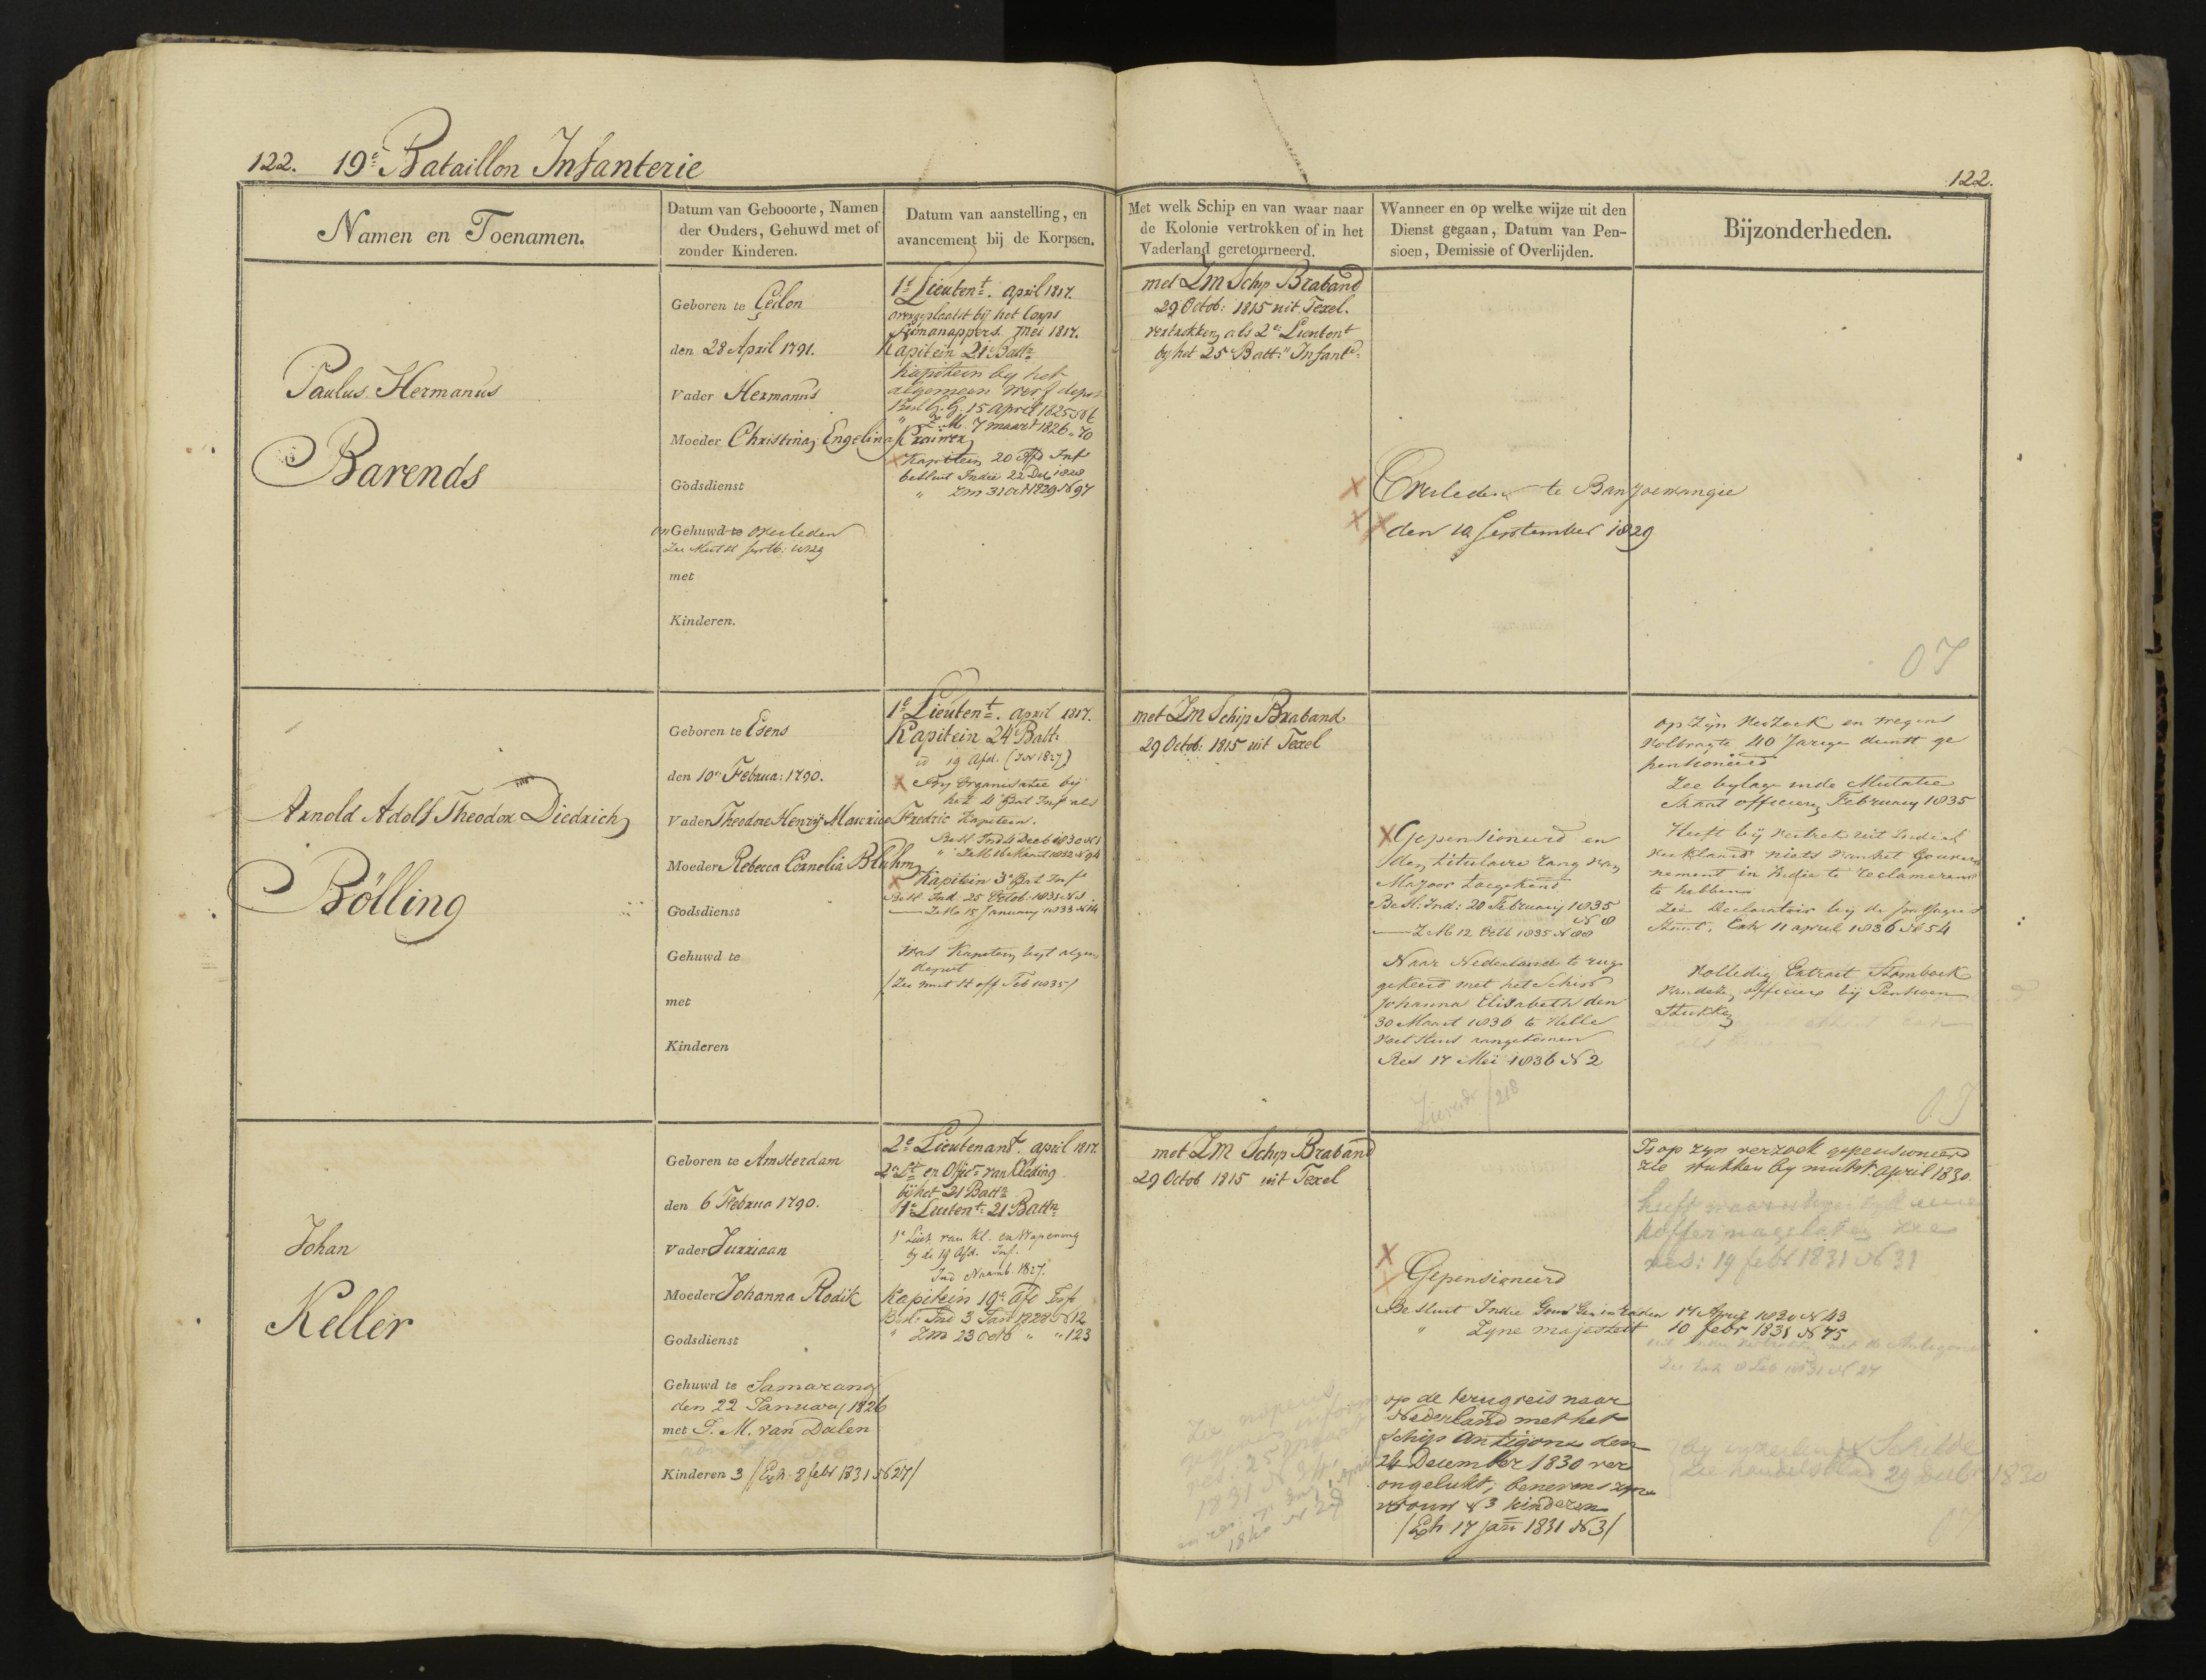 122. 19e Bataillon Infanterie
122.
Namen en Toenamen.
Datum van Gebooorte, Namen
der Ouders, Gehuwd met of
zonder Kinderen.
Datum van aanstelling, en
avancement bij de Korpsen.
Met welk Schip en van waar naar
de Kolonie vertrokken of in het
Vaderland geretourneerd.
Wanneer en op welke wijze uit den
Dienst gegaan, Datum van Pen-
sioen, Demissie of Overlijden.
Bijzonderheden.
Paulus Hermanus
Barends
Geboren te Ceilon
den 28 April 1791.
Vader Hermanus
Moeder Christina Engelina Kraimer
Godsdienst
onGehuwd te overleden
Zie Mutst septb: 1829
met
Kinderen.
1e Lieutent. april 1817.
overgeplaatst bij het Corps
mei 1817.
Kapitein 21e Battn
Kapitein by het
algemeen werf depot
Besl G. G. 15 april 1825 No 6
" Z.M. 7 maart 1826 " 70
Kapitein 20 Afd Inf
besluit Indie 22 Dec 1828
" Zm 31 Oct 1829 No 97
met ZM Schip Braband
29 Octob: 1815 uit Texel.
vertrokken als 2e Lieutent
by het 25 Battn Infante.
Overleden te Banjoewangie
den 10 September 1829
OI
Arnold Adolf Theodor Diedrich
Bölling
Geboren te Esens
den 10n Februa: 1790.
Vader Theodore Henry Maurice Fredric
Moeder Rebecca Cornelia Bluhm
Godsdienst
Gehuwd te
met
Kinderen
1e Lieutent. april 1817.
Kapitein 24e Batt:
id 19 Afd. (Jn 1827)
By Organisatie bij
het 4e Bat Inf als
Kapitein.
Besl Ind 4 Decb 1830 No 1
" ZM 16 Maart 1832 No 94
Kapitein 3e Bat Inf
Besl Ind. 25 Octob. 1831 No 1
ZM 15 January 1833 No 114
was Kapitein by't algem
depot
(Zie mut st off Feb 1835)
met ZM Schip Braband
29 Octob: 1815 uit Texel
Gepensioneerd en
den titulaire rang van
Majoor toegekend
Besl: Ind: 20 February 1835
No 8
ZM 12 Octb 1835 No 88
Naar Nederland te rug
gekeerd met het Schip
Johanna Elisabeth den
30 Maart 1836 te Helle
voet Sluis aangekomen
Res 17 Mei 1836 No 2
218
op zijn verzoek en wegens
volbragte 40 Jarige dienst ge
pensioneerd
Zie bylage inde Mutatie
Staat officieren February 1835
Heeft bij vertrek uit Indien
verklaard niets van het Gouver
nement in Indie te reclameren
te hebben
Zie Declaratoir bij de
Exh 11 april 1836 No 54
Volledig Extract Stamboek
van dezen officier bij Pensioen
Stukken
OI
Johan
Keller
Geboren te Amsterdam
den 6 Februa 1790.
Vader Jurriaan
Moeder Johanna Rodik
Godsdienst
Gehuwd te Samarang
den 22 January 1826
met S. M. van Dalen
Kinderen 3 /Exh: 8 febr 1831 No 27/
2e Lieutenant. april 1817.
2e Lt en Offic. van Kleding
bij het 21 Battn
1e Lieutent: 21 Battn
1e Luit. van Kl. en Wapening
by de 19 Afd. Inf.
Ind Naamb. 1827.
Kapitein 19e Afd Inf
Besl: Ind 3 Jan 1828 No 12
" Zm 23 Octb " " 123
met ZM Schip Braband
29 Octob 1815 uit Texel
Gepensioneerd
Besluit Indie Gouv Gen in Raden 17 April 1830 No 43
" Zyne majesteit 10 febr 1831 No 75
op de terugreis naar
Nederland met het
schip Antigone den
24 December 1830 ver
ongelukt, benevens zyne
vrouw & 3 kinderen
/Exh 17 Jan 1831 No 3/
Is op zyn verzoek gepensioneerd
zie stukken by mutst. april 1830.
koffer nagelaten zie
res: 19 febr 1831 No 31
Zie Exh 8 Feb 1831 No 27
Zie handelsblad 29 Decbr 1830